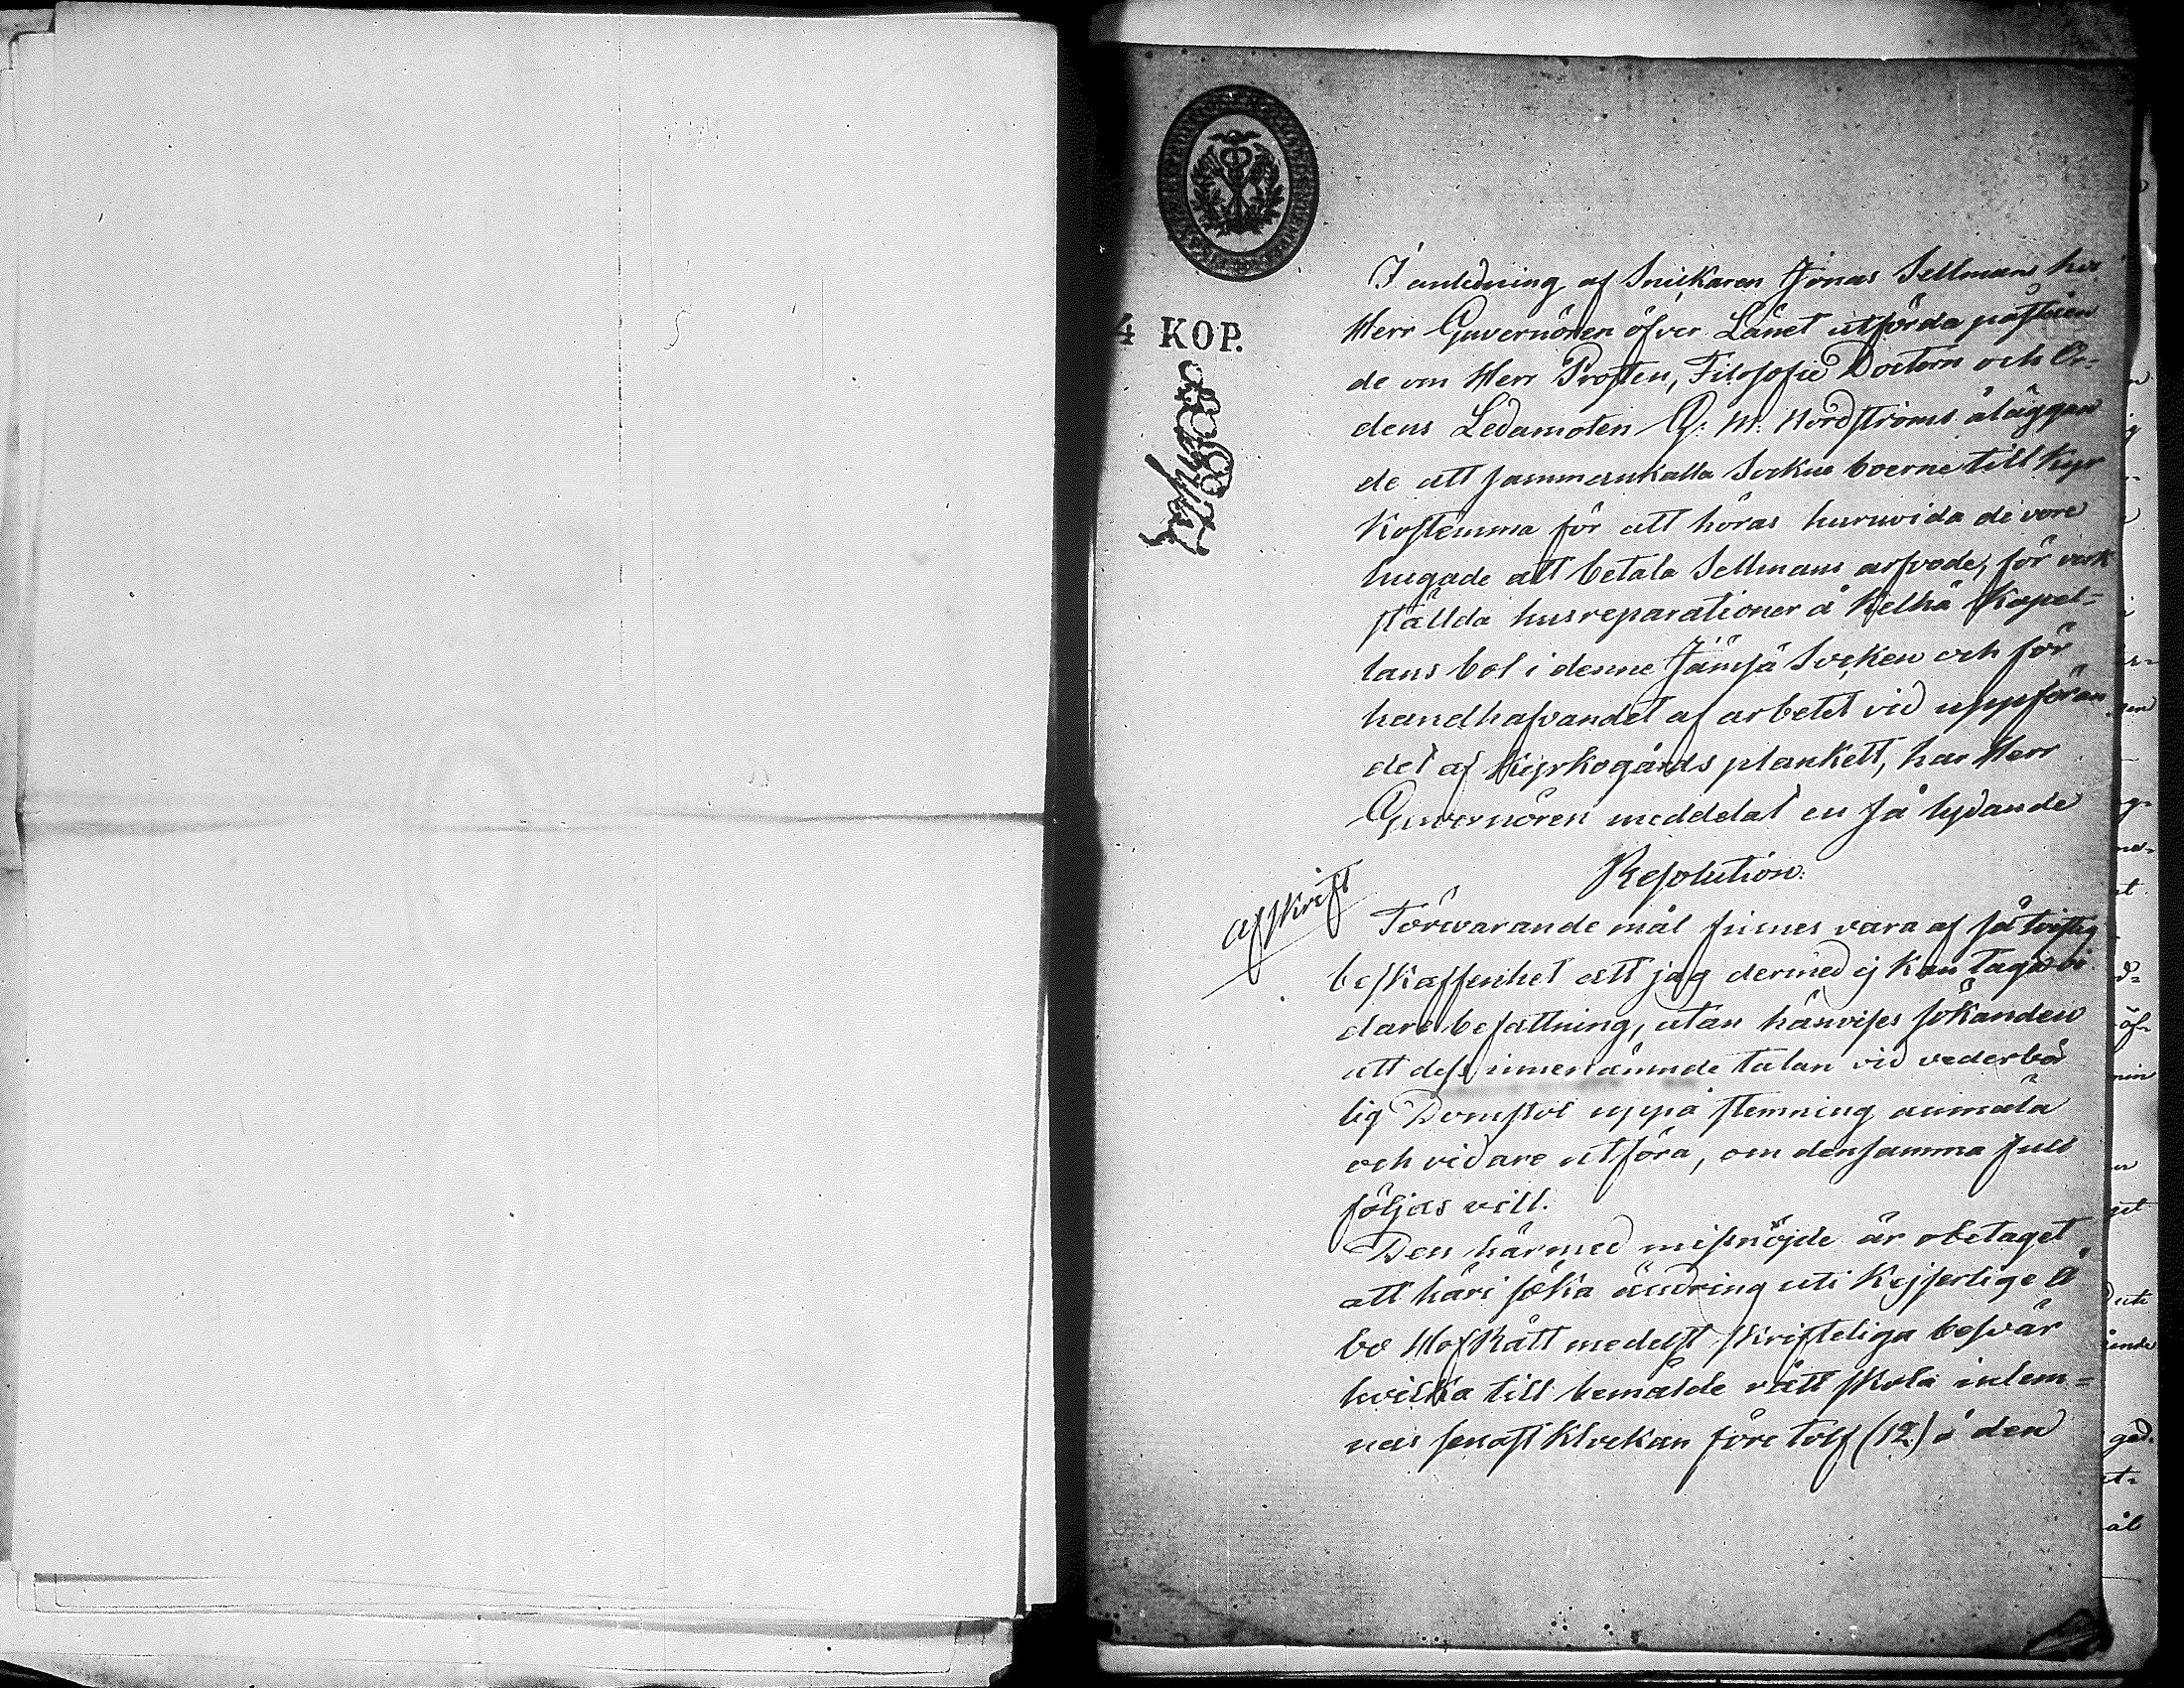 4 KOP.
I anledning af Snickaren Jonas Sellmans hos
Herr Guvernören öfver Länet utförda påståen
de om Herr Prosten, Filosofie Doctorn och Or-
dens Ledamoten G: M: Nordströms åläggan
de att sammankalla Sockne boerne till Kyr
kostämma för att höras huruvida de vore
hugade att betala Sellmans arfvode, för verk
ställda husreparationer å Kelhä Kapel-
lans bol i denne Jämsä Socken och för
handhafvandet af arbetet vid uppföran
det af Kyrkogårds plankett, har Herr
Guvernören meddelat en så lydande
Resolution:
Afskrift
Förevarande mål finnes vara af så tvistig
beskaffenhet att jag dermed ej kan taga vi
dare befattning, utan hänvises sökanden
att dess innenämnde talan vid vederbör
lig Domstol uppå stemning anmäla
och vidare utföra, om densamma full
följas vill.
Den härmed missnöjde är obetaget
att häri söka ändring uti Kejserlige Å
bo HofRätt medelst skrifteliga besvär
hvilka till bemälde rätt skola inlem-
nas senast klockan före tolf (12) å den